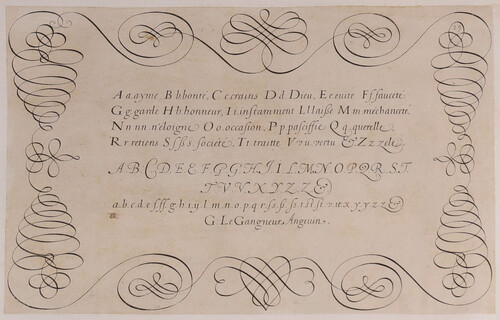 A a.ayme B b.bonté, C c.crains D d. Dieu, E e.euite F f.faucetté
G g.garde H h.honneur, I i.instamment L l.laisse M m.mechanceté
N n n n'éloigne O o.occasion, P p.paciffie Q q.querelle,
R r.retiens S ſ.s ß. societé, T t.traitte V v.u.vertu & Z z.zelle,
A B C D E E F G G H I J L M N O P Q R S T
T V V X Y Z Z &
a.b.c.d.e.f.ff.g.h.i.y.l.m.n.o.p.q.r.ſ.s.ß.ſs.t.ſt.ſt.v.u.x.y.y.z.z.&
G. Le Gangneur Angeuin.